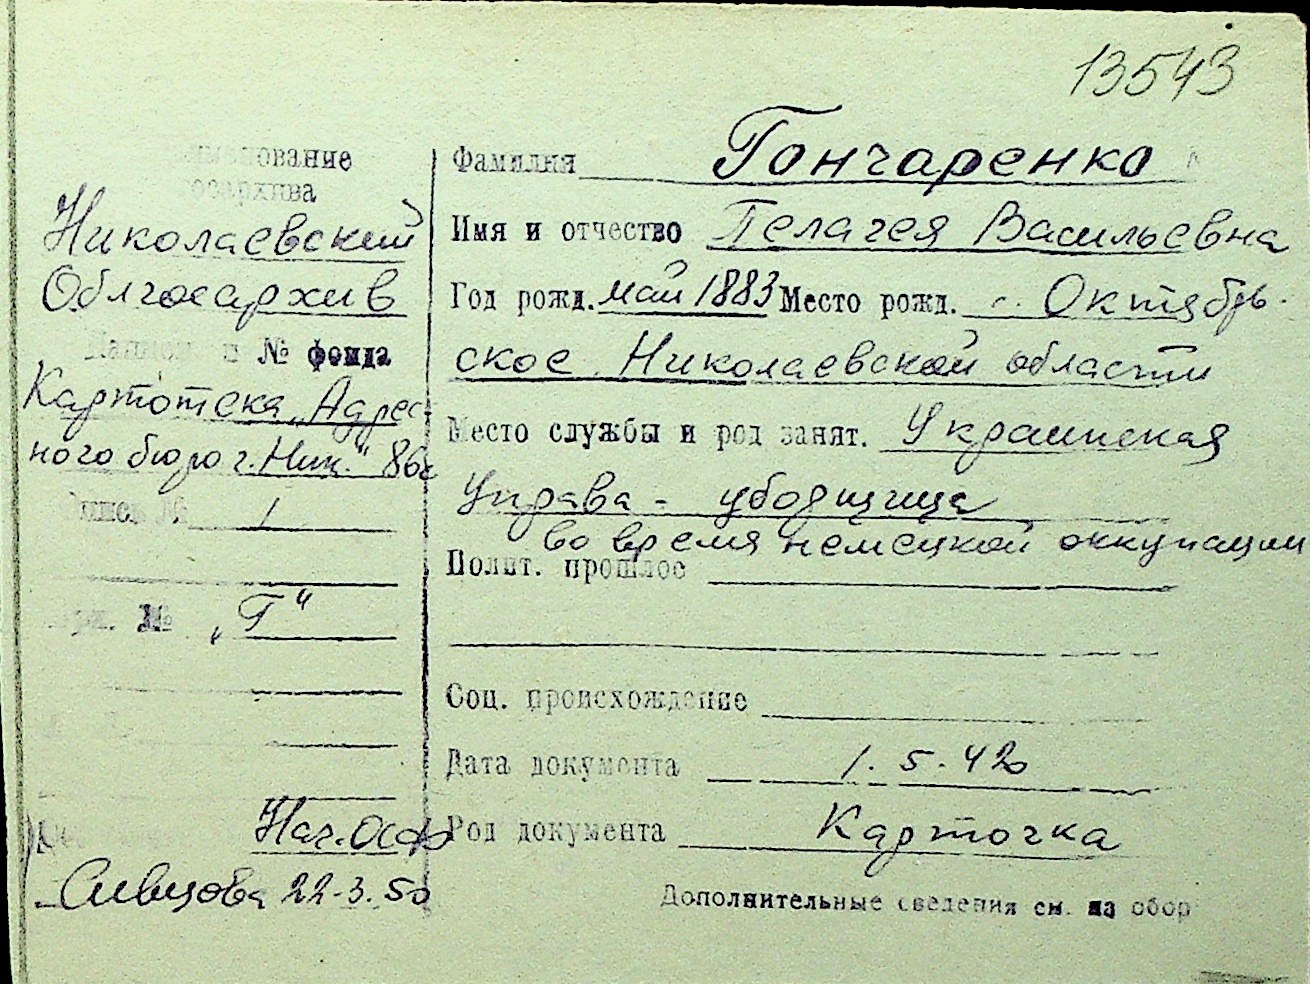 13543
Наименование
госархива
Николаевский
Облгосархив
Название и № фонда
Картотека „Адрес-
ного бюро г. Ник." 86с
Опись № 1
Ед. хр. № „Г"
Нач. ОСФ
Сивцова 22-3.50
Фамилия Гончаренко
Имя и отчество Пелагея Васильевна
Год рожд. май 1883 Место рожд. Октябрь-
ское Николаевской области
Место службы и род занят. Украинская
Управа - уборщица
во время немецкой оккупации
Полит. прошлое
Соц. происхождение
Дата документа 1.5.42
Род документа Карточка
Дополнительные сведения см. на обор